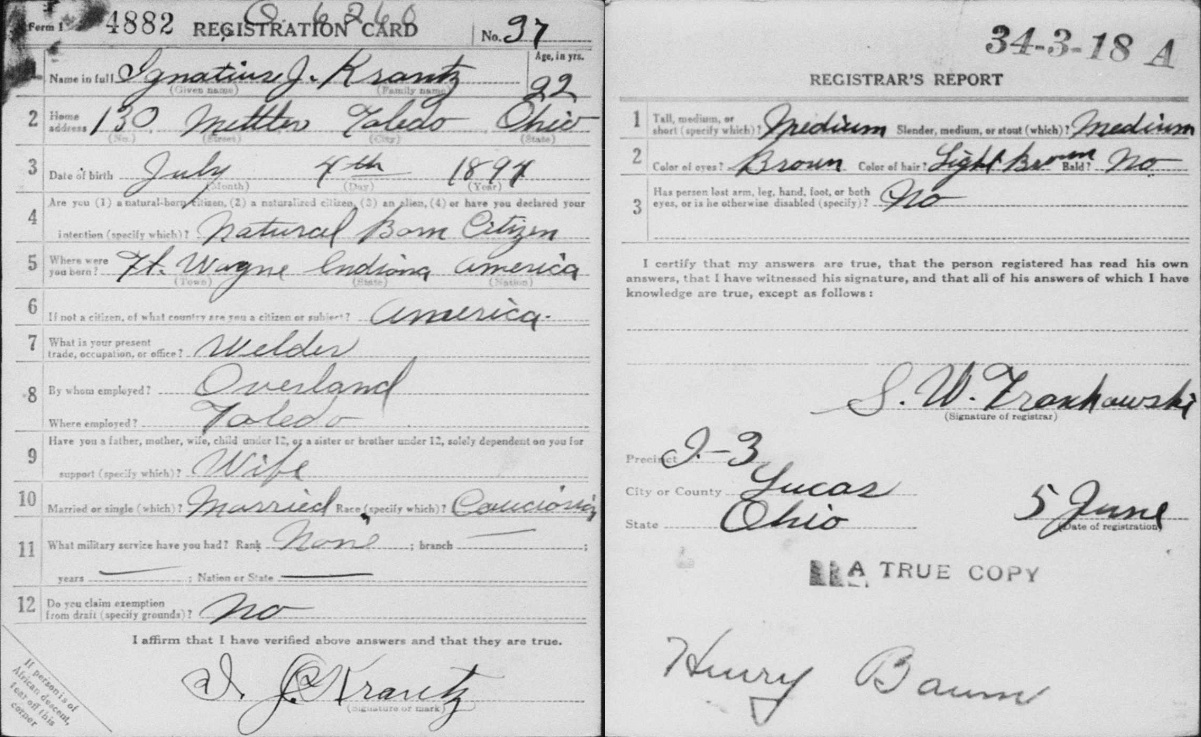 Form 1 4882 REGISTRATION CARD No. 37
Age, in yrs.
1 Name in full Ignatius J. Krantz 22
(Given name) (Family name)
2 Home address 130 Mettler Toledo Ohio
(No.) (Street) (City) (State)
3 Date of birth July 4th 1894
(Month) (Day) (Year)
4 Are you (1) a natural-born citizen, (2) a naturalized citizen, (3) an alien, (4) or have you declared your
intention (specify which)? Natural Born Citizen
5 Where were you born? Ft. Wayne Indiana America
(Town) (State) (Nation)
6 If not a citizen, of what country are you a citizen or subject? America.
7 What is your present trade, occupation, or office? Welder
8 By whom employed? Overland
Where employed? Toledo
9 Have you a father, mother, wife, child under 12, or a sister or brother under 12, solely dependent on you for
support (specify which)? Wife
10 Married or single (which)? Married Race (specify which)?
11 What military service have you had? Rank None ; branch — ;
years — ; Nation or State —
12 Do you claim exemption from draft (specify grounds)? No
I affirm that I have verified above answers and that they are true.
I. J. Krantz
(Signature or mark)
If person is of
African descent,
tear off this
corner
34-3-18 A
REGISTRAR'S REPORT
1 Tall, medium, or short (specify which)? Medium Slender, medium, or stout (which)? Medium
2 Color of eyes? Brown Color of hair? Light Brown Bald? No
3 Has person lost arm, leg, hand, foot, or both eyes, or is he otherwise disabled (specify)? No
I certify that my answers are true, that the person registered has read his own
answers, that I have witnessed his signature, and that all of his answers of which I have
knowledge are true, except as follows:
S. W.
(Signature of registrar)
Precinct I-3
City or County Lucas
State Ohio 5 June
(Date of registration)
A TRUE COPY
Henry Baum